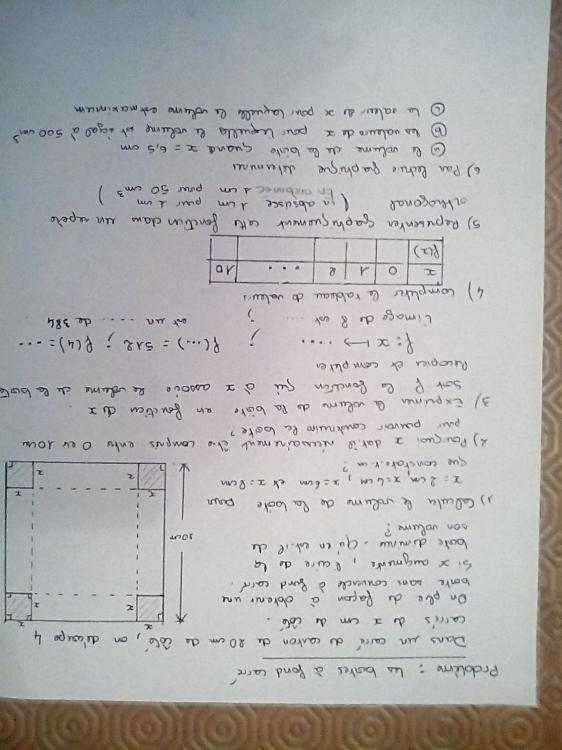 Problème : les boîtes à fond carré
Dans un carré de carton de 20 cm de côté, on découpe 4
carrés de x cm de côté.
On plie de façon à obtenir une
boîte sans couvercle à fond carré.
Si x augmente, l'aire de la
boîte diminue. Qu'en est-il de
son volume?
x
x
x
x
20cm
x
x
x
x
1) Calculer le volume de la boîte pour
x = 2cm, x = 4cm, x = 6cm et x = 8cm
que constate-t-on?
2) Pourquoi x doit-il nécessairement être compris entre 0 et 10cm
pour pouvoir construire la boîte?
3) Exprimer le volume de la boîte en fonction de x.
Soit f la fonction qui à x associe le volume de la boîte
Recopier et compléter
f: x ↦ ..... ; f(...) = 512 ; f(4) = ...
L'image de 8 est .... ; est un ..... de 384
4) Compléter le tableau de valeurs
x 0 1 2 ... 10
f(x)
5) Représenter graphiquement cette fonction dans un repère
orthogonal ( en abscisse 1 cm pour 1 cm )
En 1 cm pour 50 cm³
6) Par lecture graphique déterminer
a) le volume de la boîte quand x = 6,5 cm
b) les valeurs de x pour lesquelles le volume est égal à 500 cm³
c) la valeur de x pour laquelle le volume est maximum